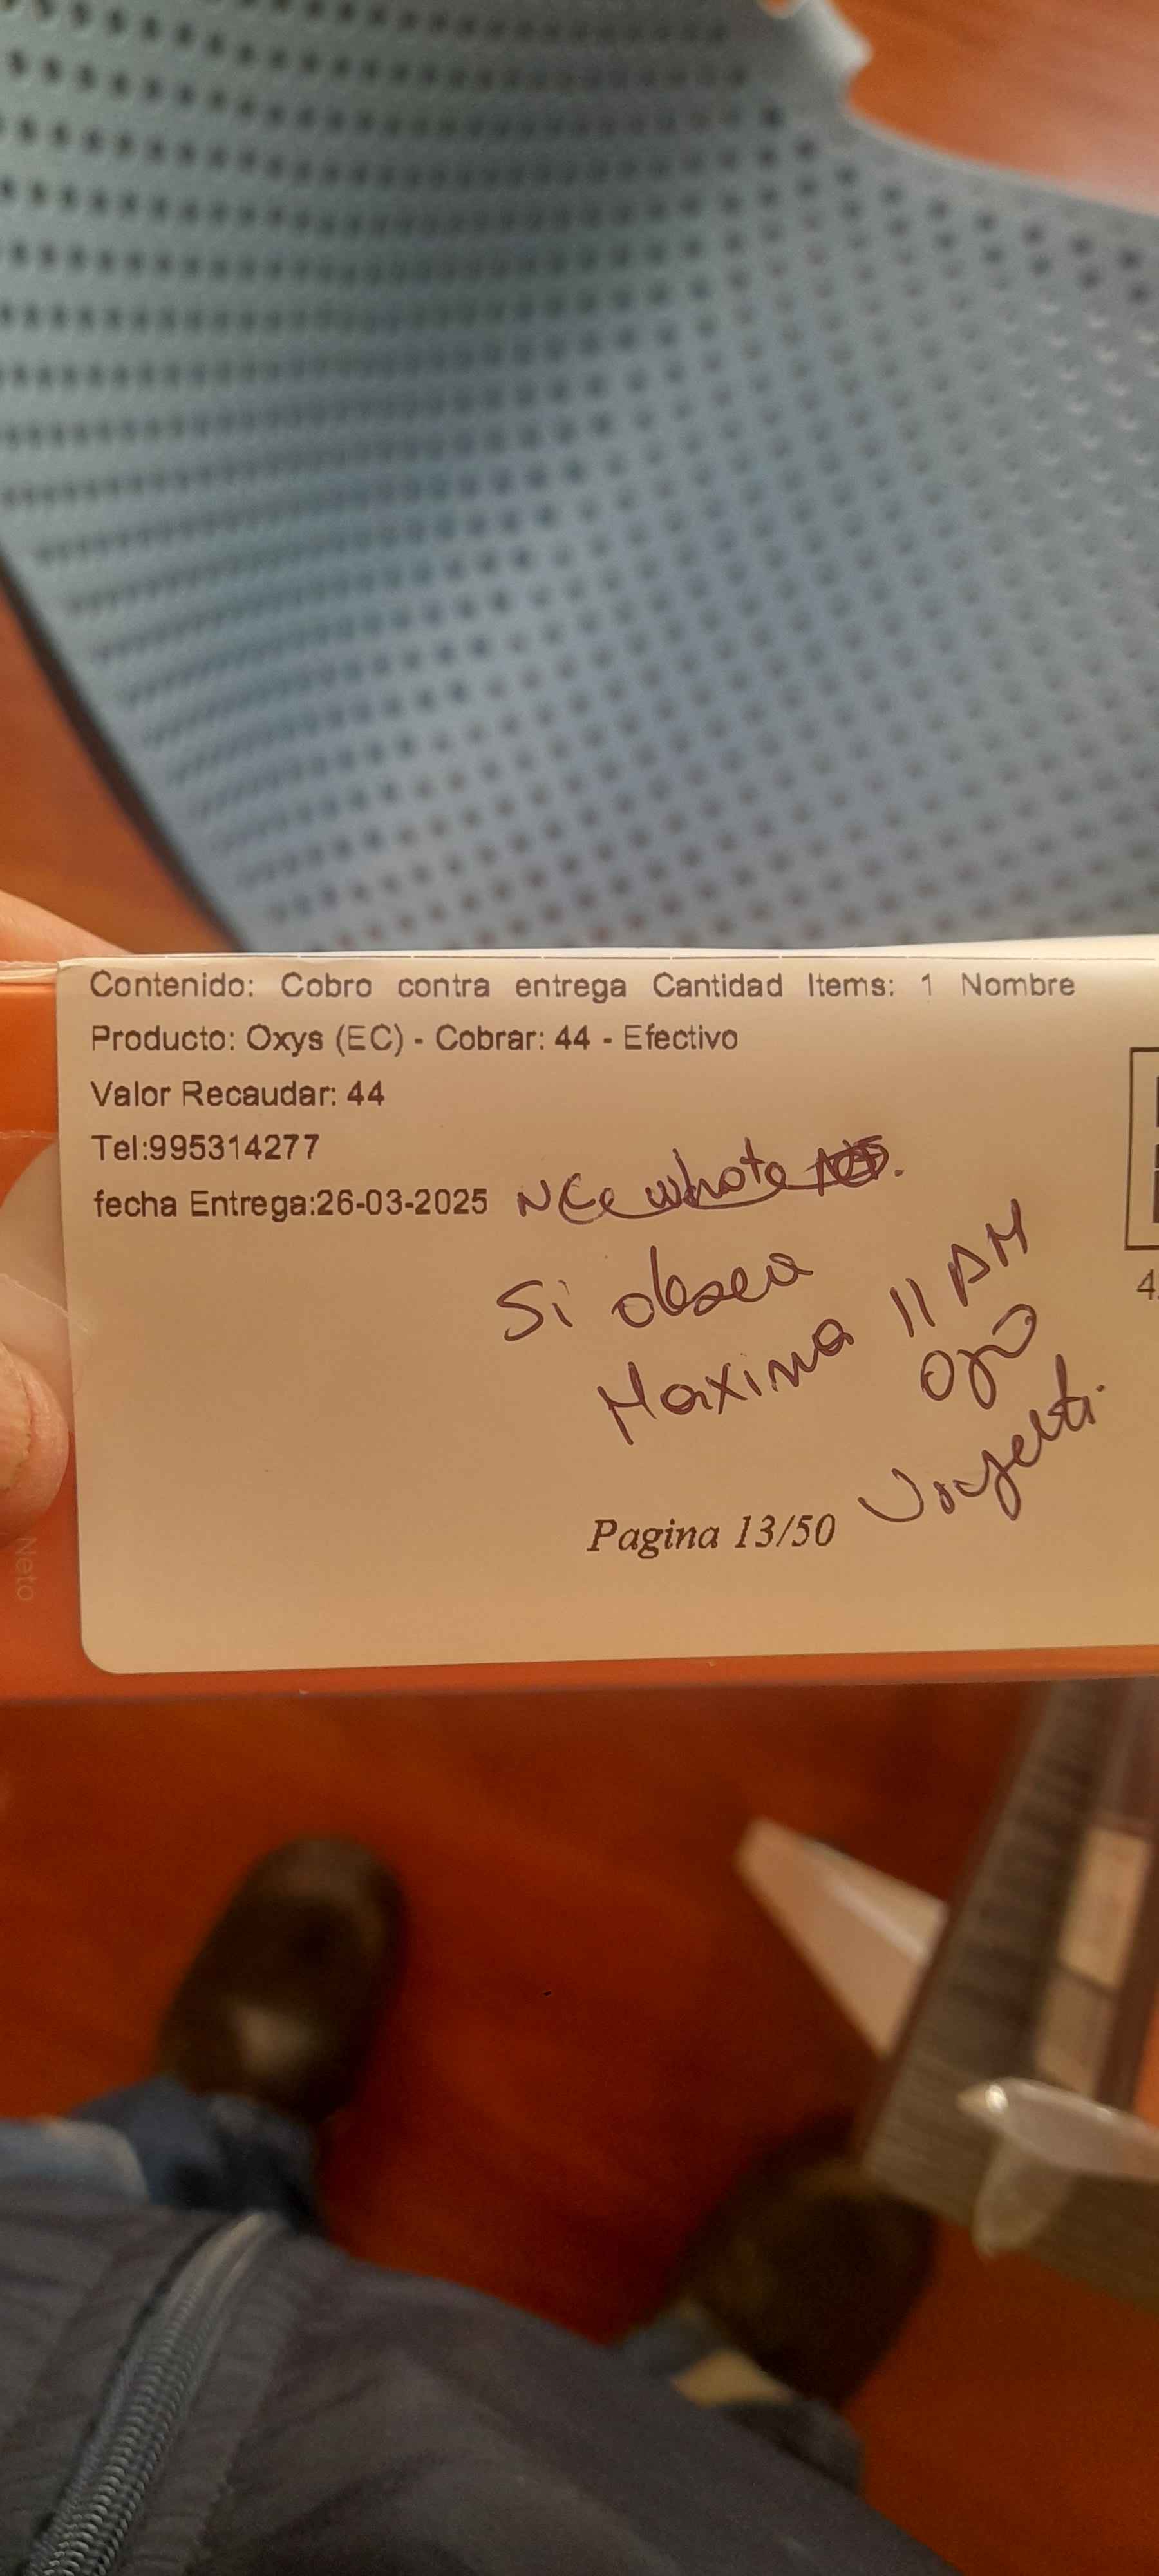 Contenido: Cobro contra entrega Cantidad Items: 1 Nombre
Producto: Oxys (EC) - Cobrar: 44 - Efectivo
Valor Recaudar: 44
Tel:995314277
fecha Entrega:26-03-2025
Si desea
Maxima 11 AM
Ojo
Pagina 13/50
Neto
4